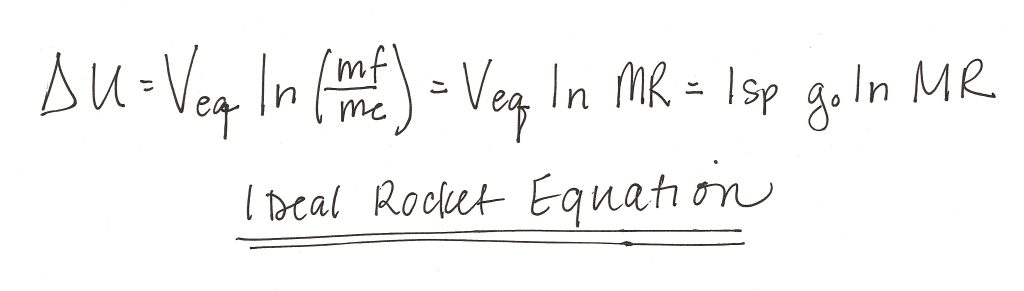 ΔU = Veq ln (mf/me) = Veq ln MR = Isp g₀ ln MR
Ideal Rocket Equation